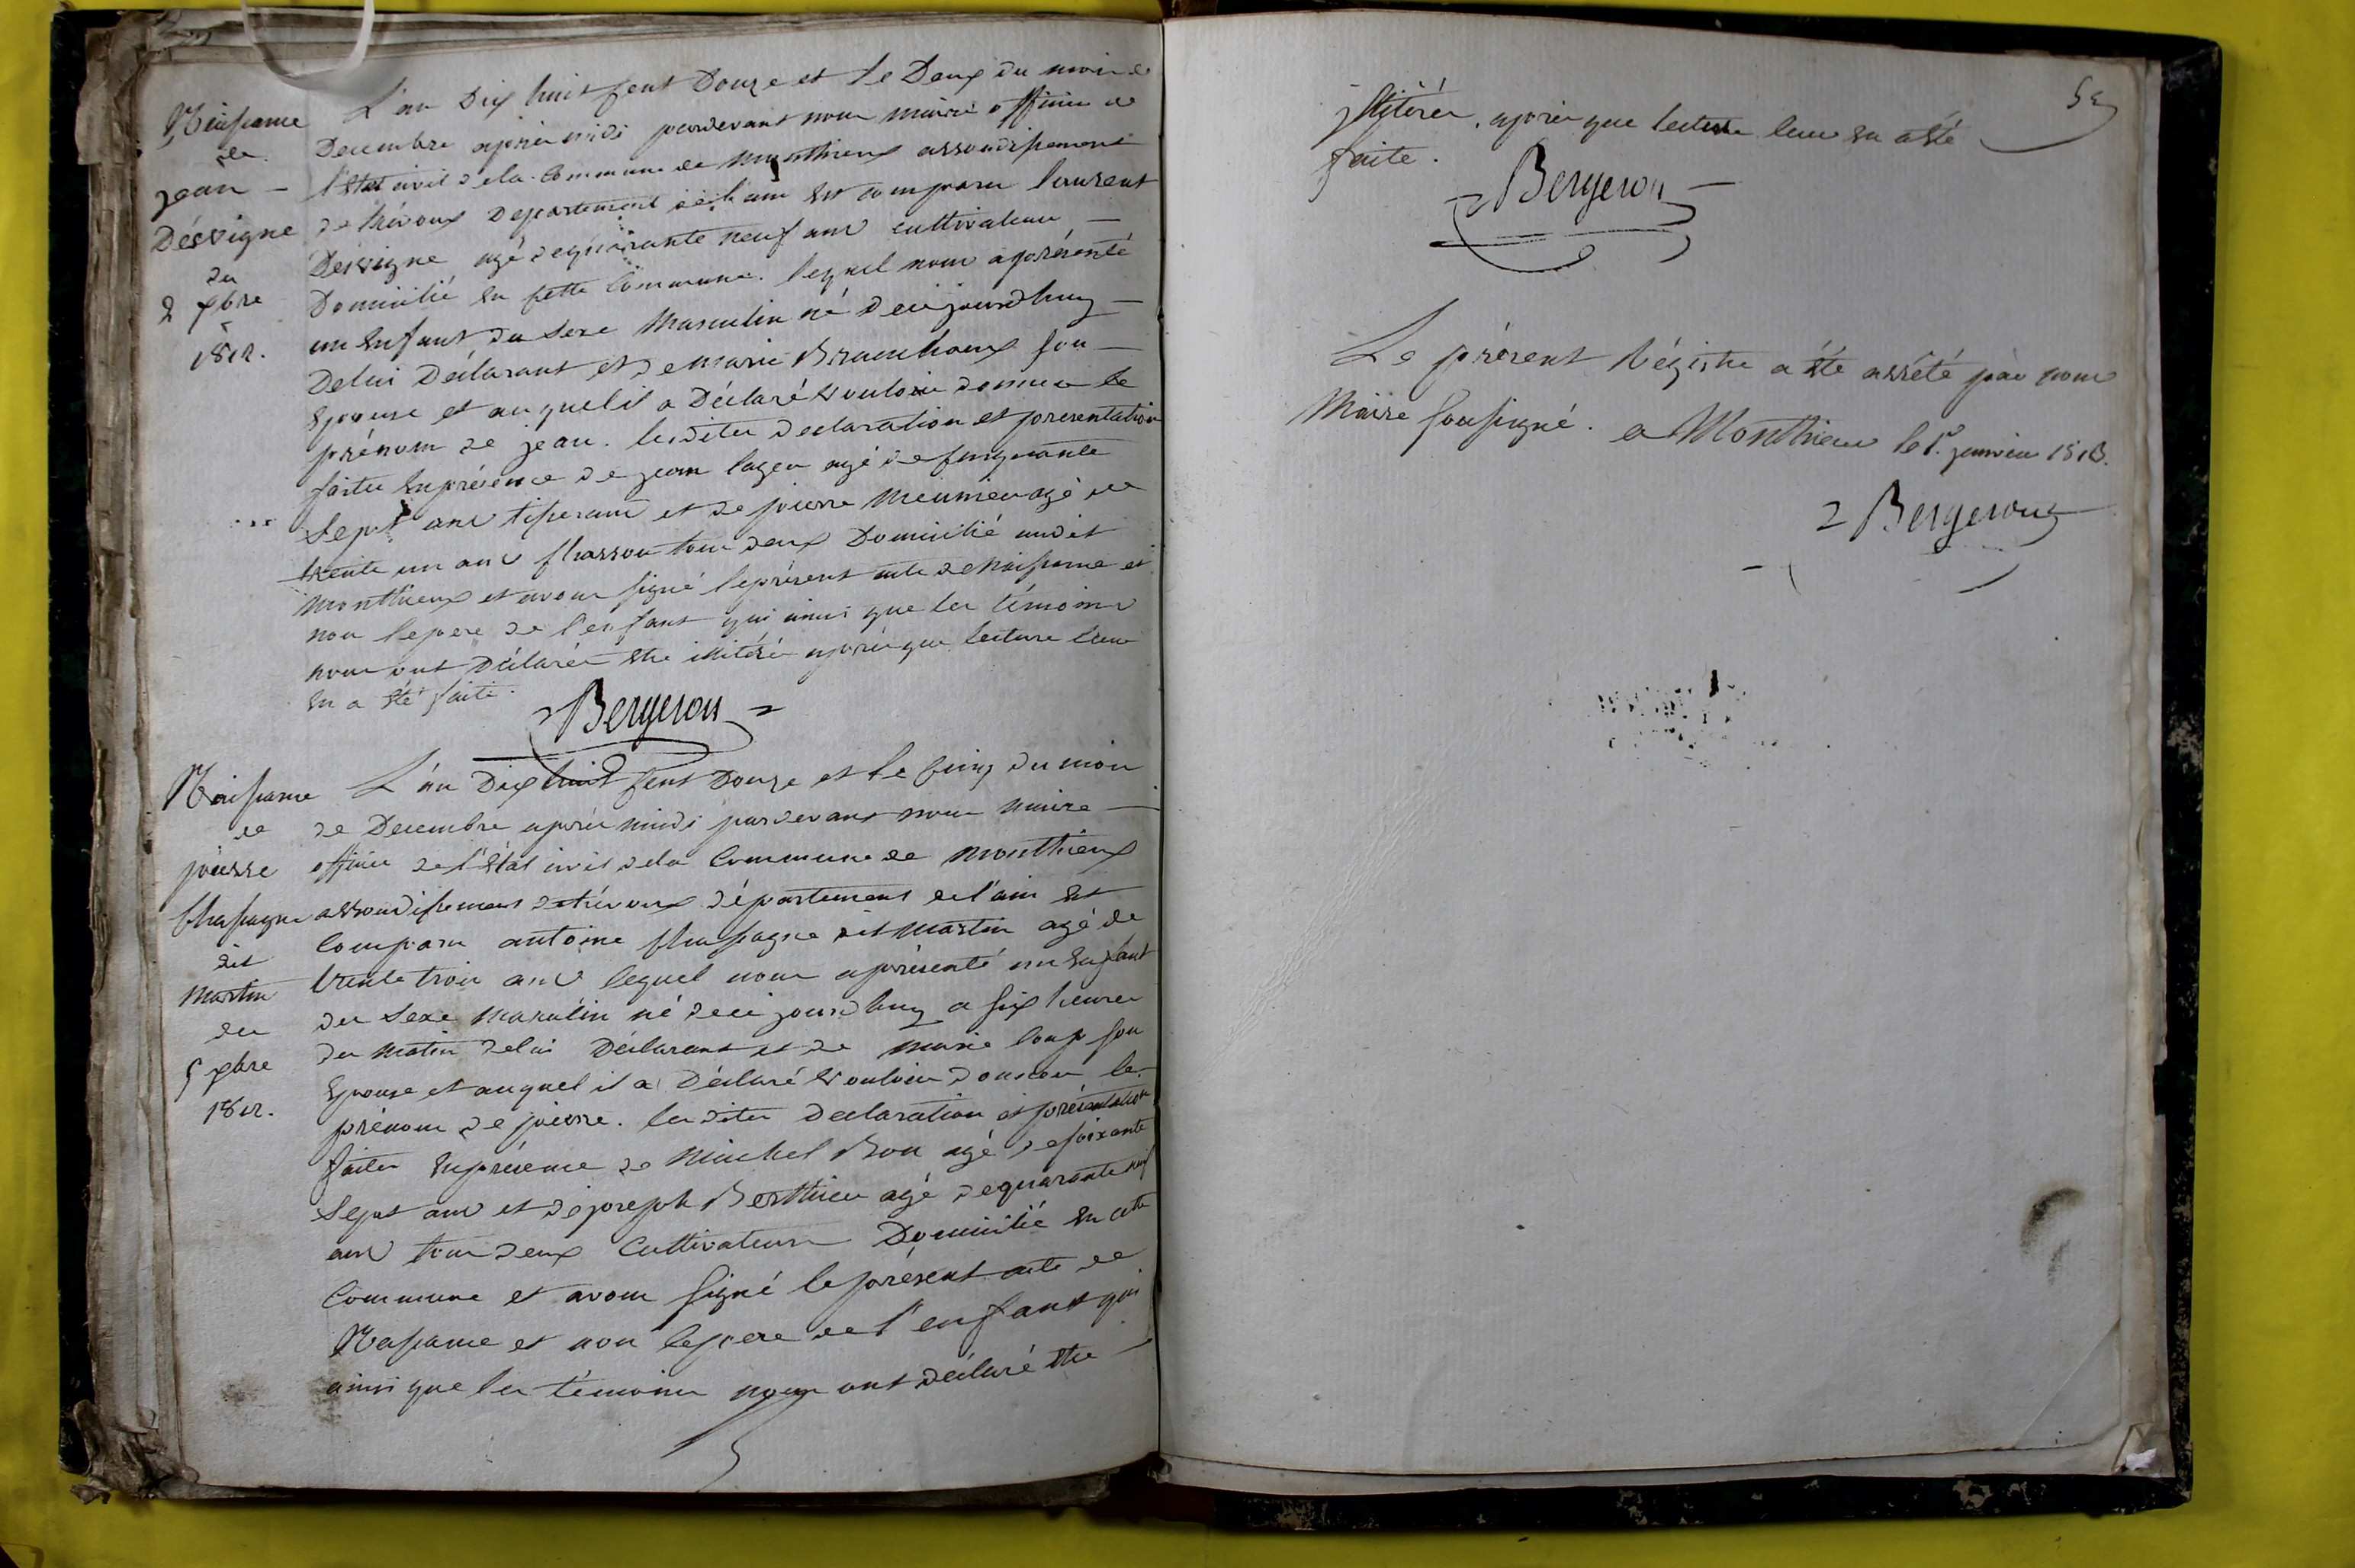 Naissance
de
jean
Désvigne
du
2 xbre
1812.
L'an Dix huit sent Douze et le Deux du mois de
Decembre après midi pardevant nous maire officier de
l'état civil de la Commune de Monthieux arrondissement
de trévoux Departement de l'ain est comparu laurent
Desvigne agé de quarante neuf ans cultivateur
Domicilié en sette Commune. lequel nous a présenté
un enfant du sexe Masculin né de ce jourdhuy
Delui Déclarant et de marie son
Epouse et auquel il a Déclaré vouloir donner le
prénom de jean. lesdites declaration et presentation
faites en présence de jean lager agé de sinquante
sept ans tisserant et de pierre Meunier agé de
trente un ans sharron tous deux Domicilié audit
Monthieux et avons signé le présent acte de naissance et
non le pere de l'enfant qui ainsi que les témoins
nous ont Déclarés être illitérés après que lecture leur
en a été faite.
Bergeron
Naissance
de
pierre
shassagne
dit
Martin
du
5 xbre
1812.
L'an Dix huit sent Douze et le sinq du mois
de Decembre après midi pardevant nous maire
officier de l'état civil de la Commune de Monthieux
arrondissement de trévoux département de l'ain est
Comparu antoine shassagne dit Martin agé de
trente trois ans lequel nous a présenté un enfant
du sexe masculin né de ce jourdhuy a six heures
du matin delui Déclarant et de Marie loup son
Epouse et auquel il a Déclaré vouloir donner le
prénom de pierre. lesdites declaration et présentation
faites en présence de Michel Bon agé de soixante
sept ans et de joseph Berthier agé de quarante neuf
ans tous deux Cultivateurs Domicilié en cette
Commune et avons signé le présent acte de
Naissance et non le pere de l'enfant qui
ainsi que les témoins nous ont déclaré être
illitérés, après que lecture leur en a été
faite.
Bergeron
Le présent Régistre a été arrêté par nous
Maire soussigné. a Monthieux le 1er. janvier 1813.
Bergeron